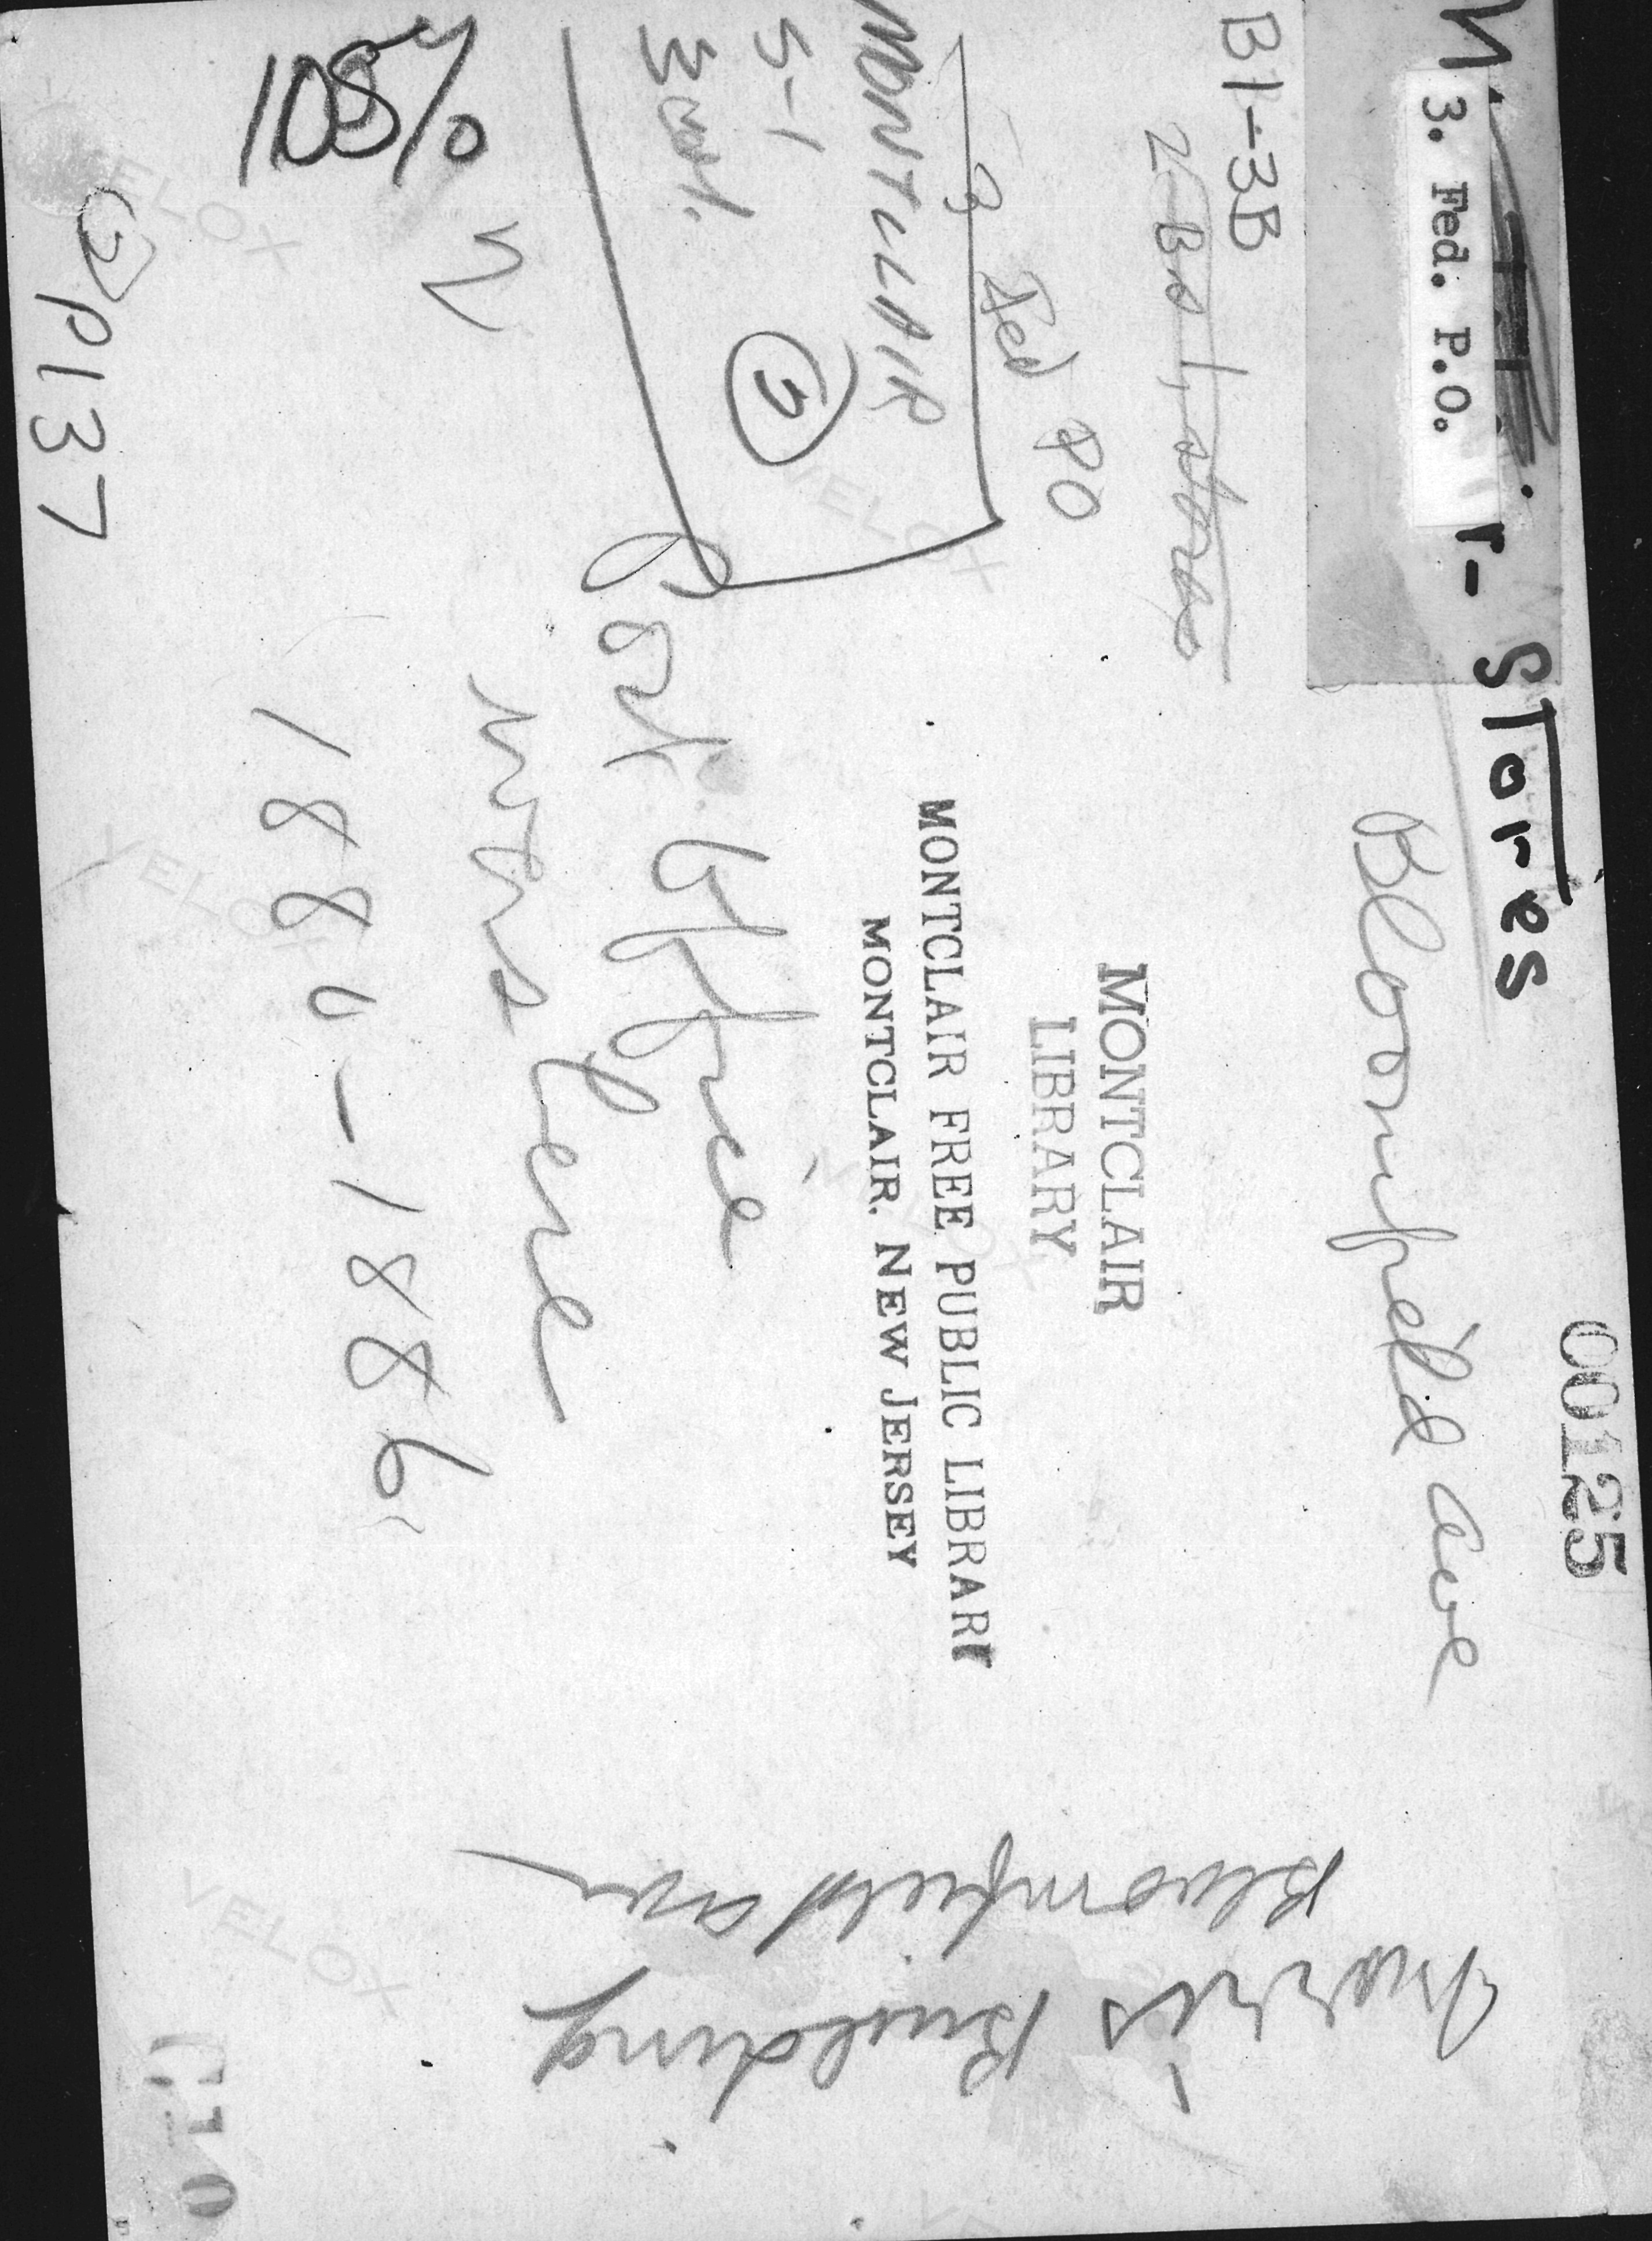 00125
r- Stores
3. Fed. P.O.
Bloomfield ave
B1-3B
2-Bs 1, stores
3 Fed PO
MONTCLAIR
LIBRARY
MONTCLAIR FREE PUBLIC LIBRARY
MONTCLAIR, NEW JERSEY
MONTCLAIR
S-1
3
Post Office
was here
1880-1886
108%
P137
Morris Building
Bloomfield ave
VELOX
VELOX
VELOX
VELOX
VELOX